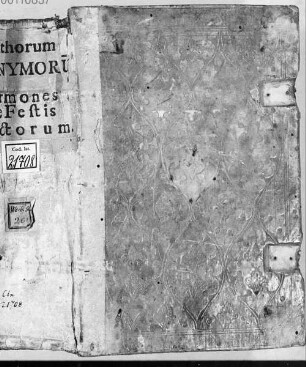 00110837
thorum
NYMORŪ
rmones
eFeſtis
ctorum
Cod. lat.
21708
Clm
21708